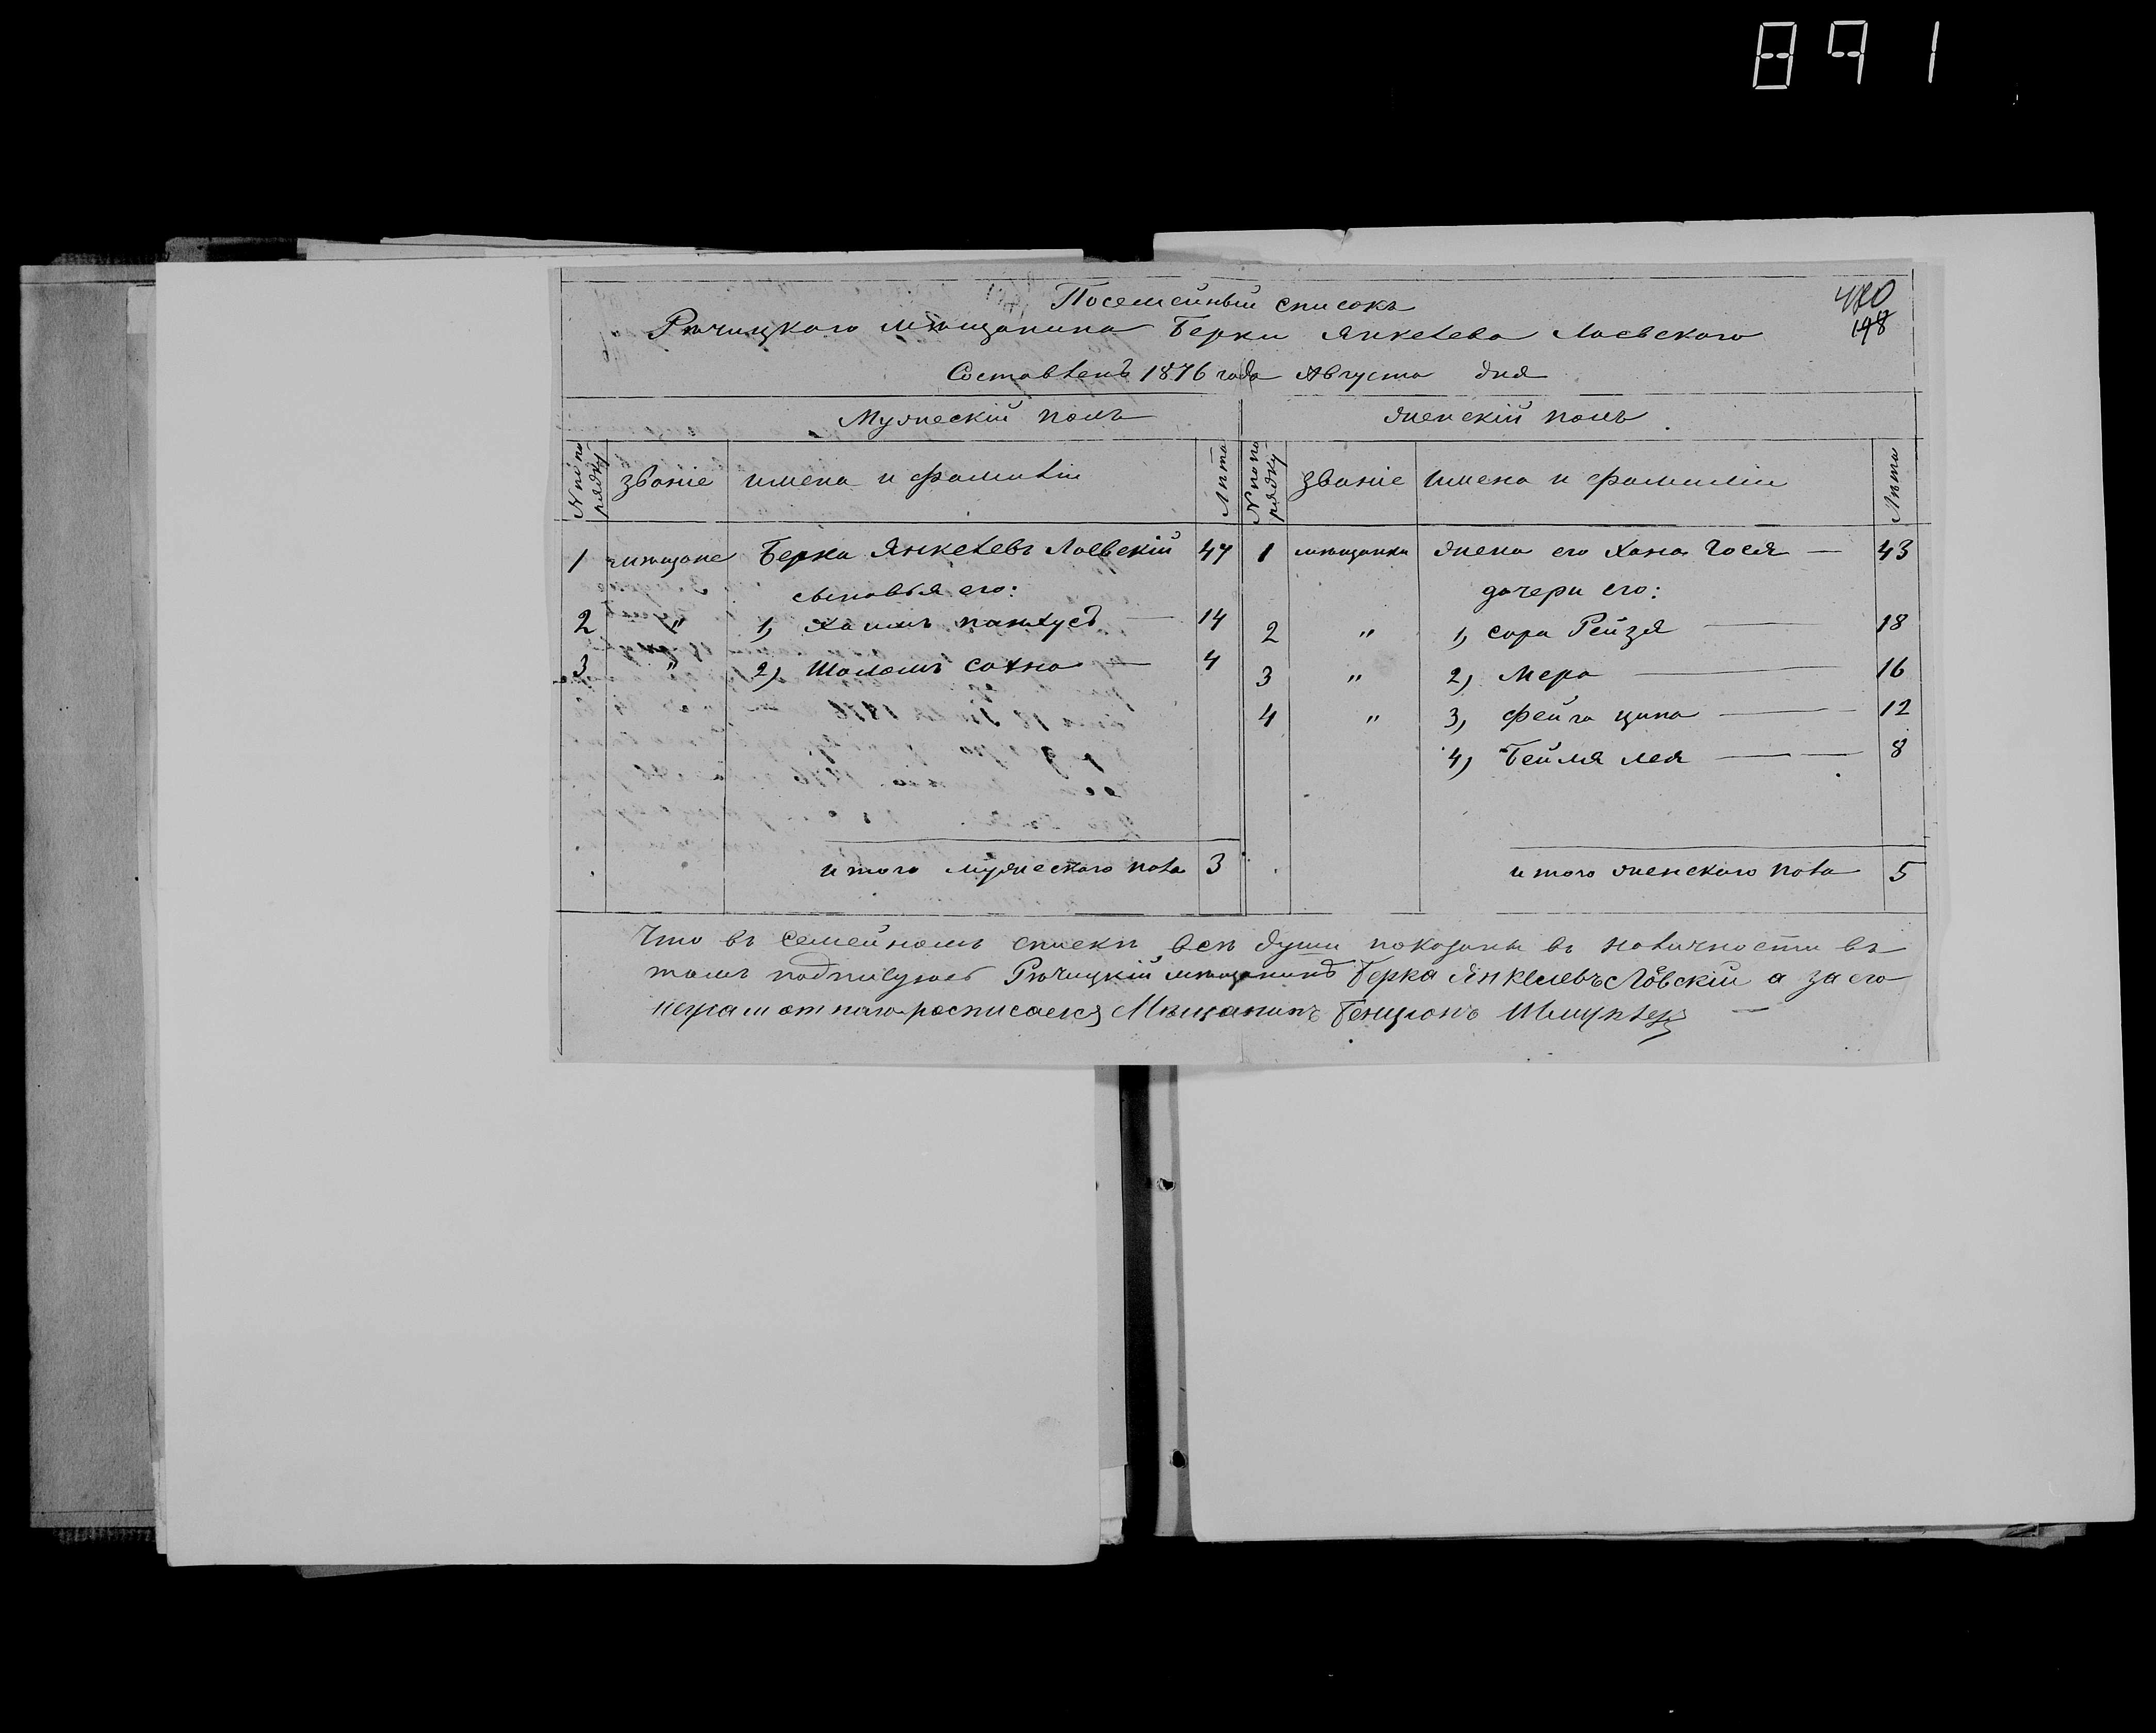 891
Посемейный списокъ
400
198
Речицкого мѣщанина Берки Янкелева Лоевского
Составленъ 1876 года Августа дня
Мужескій полъ
женскій полъ
№ по порядку
званіе
имена и фамиліи
Лѣта
№ по порядку
званіе
имена и фамиліи
Лѣта
1 мѣщане Берка Янкелевъ Лоевскій 47
1 мѣщанки жена его Хана Гося — 43
сыновья его:
дочери его:
2 " 1, Хаимъ пинхусъ — 14
2 " 1, сора Рейзя — 18
3 " 2) Шоломъ Сахно — 4
3 " 2, Мера — 16
4 " 3, фейга ципа — 12
4) Бейля лея — 8
итого мужеского пола 3
итого женского пола 5
Что въ семейномъ спискѣ всѣ души показаны въ наличности въ
томъ подписуюсь Речицкій мѣщанинъ Берка Янкелевъ Лоевскій а за его
неграмотного росписался Мѣщанинъ Бенцыонъ